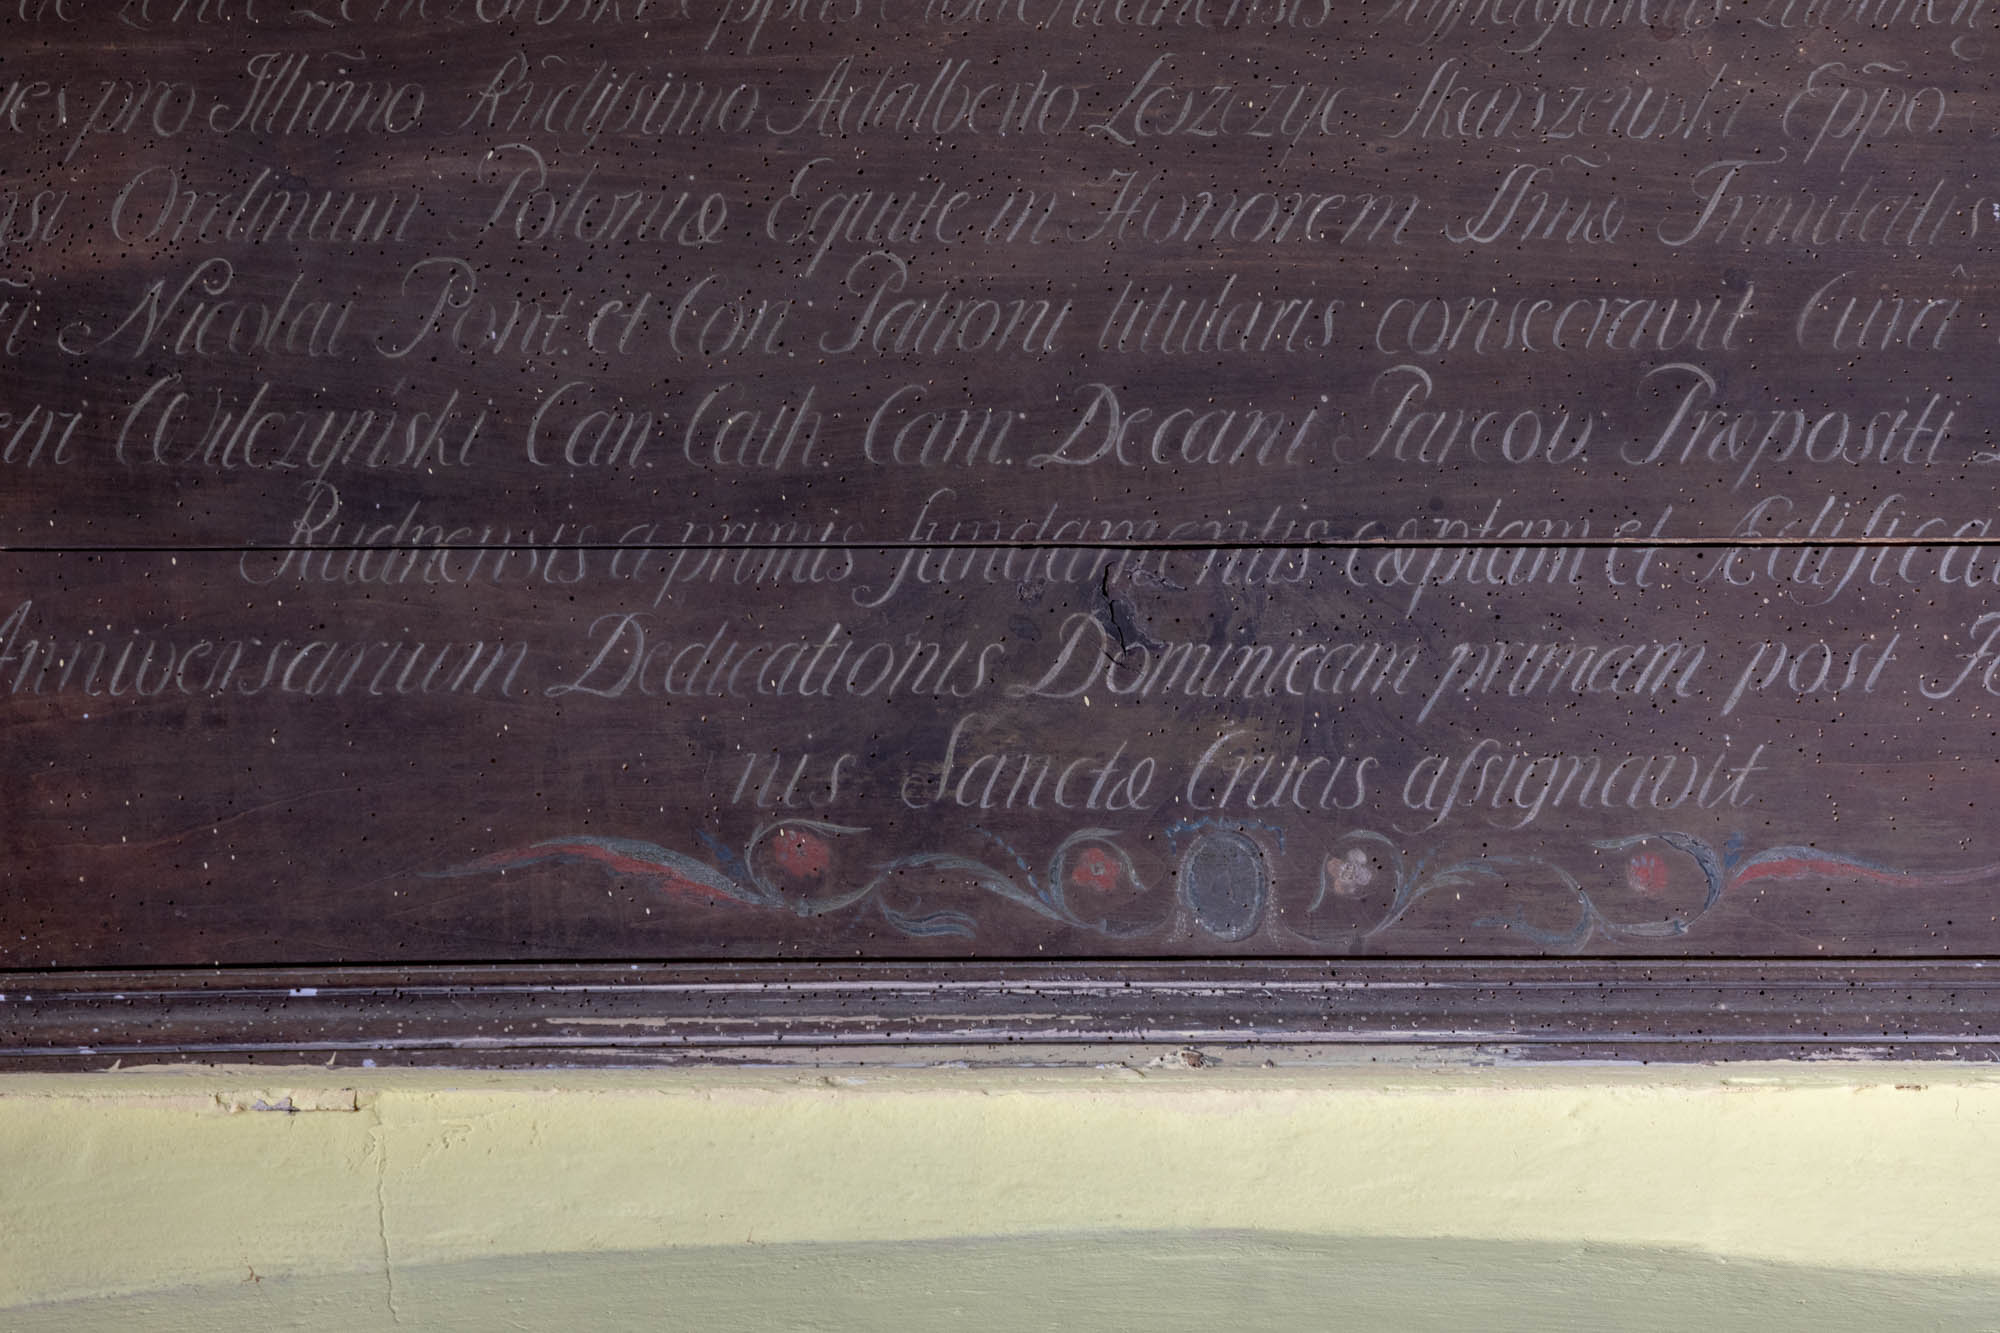 pro Illr̃mo Rñdissimo Adalberto Leszczyc Skarszewski Epp̃o
Ordinum Poloniæ Equite in Honorem Ss̃mæ Trinitatis
Nicolai Pont: et Con: Patroni titularis consecravit Curâ
etri Wilczyński Can: Cath: Cam: Decani Parcov: Præpositi
Rudnensis a primis fundamentis cæptam et Ædifica
Anniversarium Dedicationis Dominicam primam post
nis Sanctæ Crucis assignavit